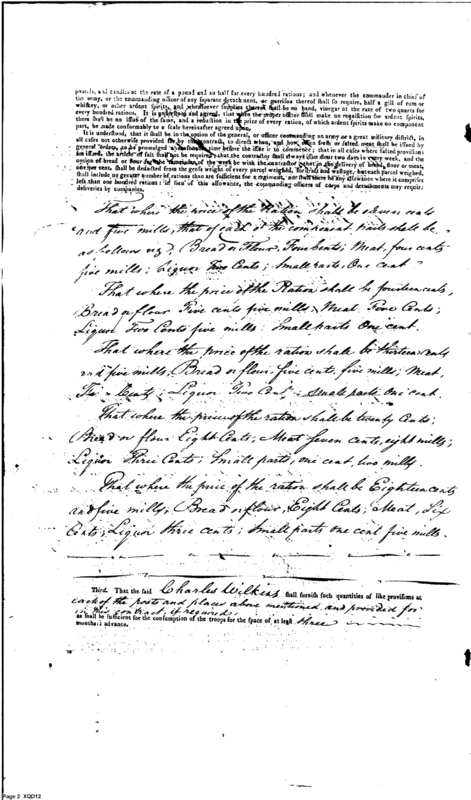 pounds, and candles at the rate of a pound and an half for every hundred rations; and whenever the commander in chief of
the army, or the commanding officer of any separate detachment, or garrison thereof shall so require, half a gill of rum or
whiskey, or other ardent spirits, and whensoever supplies thereof shall be on hand, vinegar at the rate of two quarts for
every hundred rations. It is understood and agreed, that when the proper officer shall make no requisition for ardent spirits,
there shall be no issue of the same, and a reduction in the price of every ration, of which ardent spirits make no component
part, be made conformably to a scale hereinafter agreed upon.
It is understood, that it shall be in the option of the general, or officer commanding an army or a great military district, in
all cases not otherwise provided for by this contract, to direct when, and how, often fresh or salted meat shall be issued by
general orders, to be promulged a time before the issue is to commence; that in all cases where salted provisions
are issued, the article of salt shall not be required; that the contractor shall always issue flour two days in every week, and the
option of bread or flour the of the week be with the contractor; that in the delivery of bread, flour or meat,
one per cent. shall be deducted from the gross weight of every parcel weighed, for draft and wastage, but each parcel weighed,
shall include no greater number of rations than are sufficient for a regiment, nor shall there be any allowance where it comprises
less than one hundred rations: in lieu of this allowance, the commanding officers of corps and detachments may require
deliveries by companies.
That where the price of the Ration shall be eleven cents
and five mills, that of each of the component parts shall be
as follows viz; Bread or Flour, Four Cents; Meat, four cents
five mills; Liquor Two Cents; Small parts, One Cent
That where the price of the Ration shall be fourteen cents
Bread or flour Five cents five mills, Meat Five Cents;
Liquor Two Cents five mills. Small parts One cent.
That where the price of the ration shall be thirteen cents
and five mills, Bread or flour, five cents, five mills; Meat,
Cents; Liquor Two Cents; Small parts, one cent.
That where the price of the ration shall be twenty Cents;
Bread or flour Eight Cents; Meat seven cents, eight mills;
Liquor Three Cents; Small parts, one cent, two mills.
That where the price of the ration shall be Eighteen cents
and five mills; Bread or flour, Eight Cents; Meat, Six
Cents; Liquor three cents; Small parts one cent five mills.
Third. That the said Charles Wilkins shall furnish such quantities of like provisions at
each of the posts and places above mentioned and provided for
in this contract, if required.
as shall be sufficient for the consumption of the troops for the space of at least three
months in advance.
Page 2 XQD12